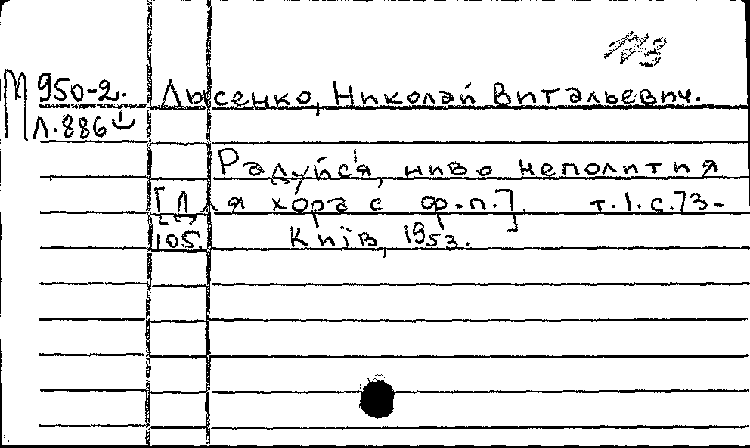 №3
М 950-2. Лысенко, Николай Витальевич.
Л.886
Радуйся, ниво неполития
[Для хора с ф.п.] т.1.с.73-
105. Київ, 1953.